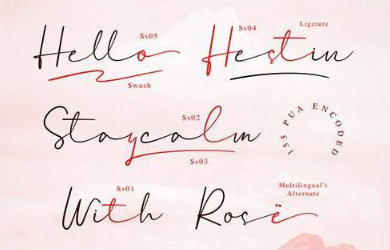 Ss05 Ss04 Ligature
Hello Hestin
Swash
Ss02
Staycalm
Ss03
155 PUA ENCODED
Ss01 Multilingual's
Alternate
With Rosë